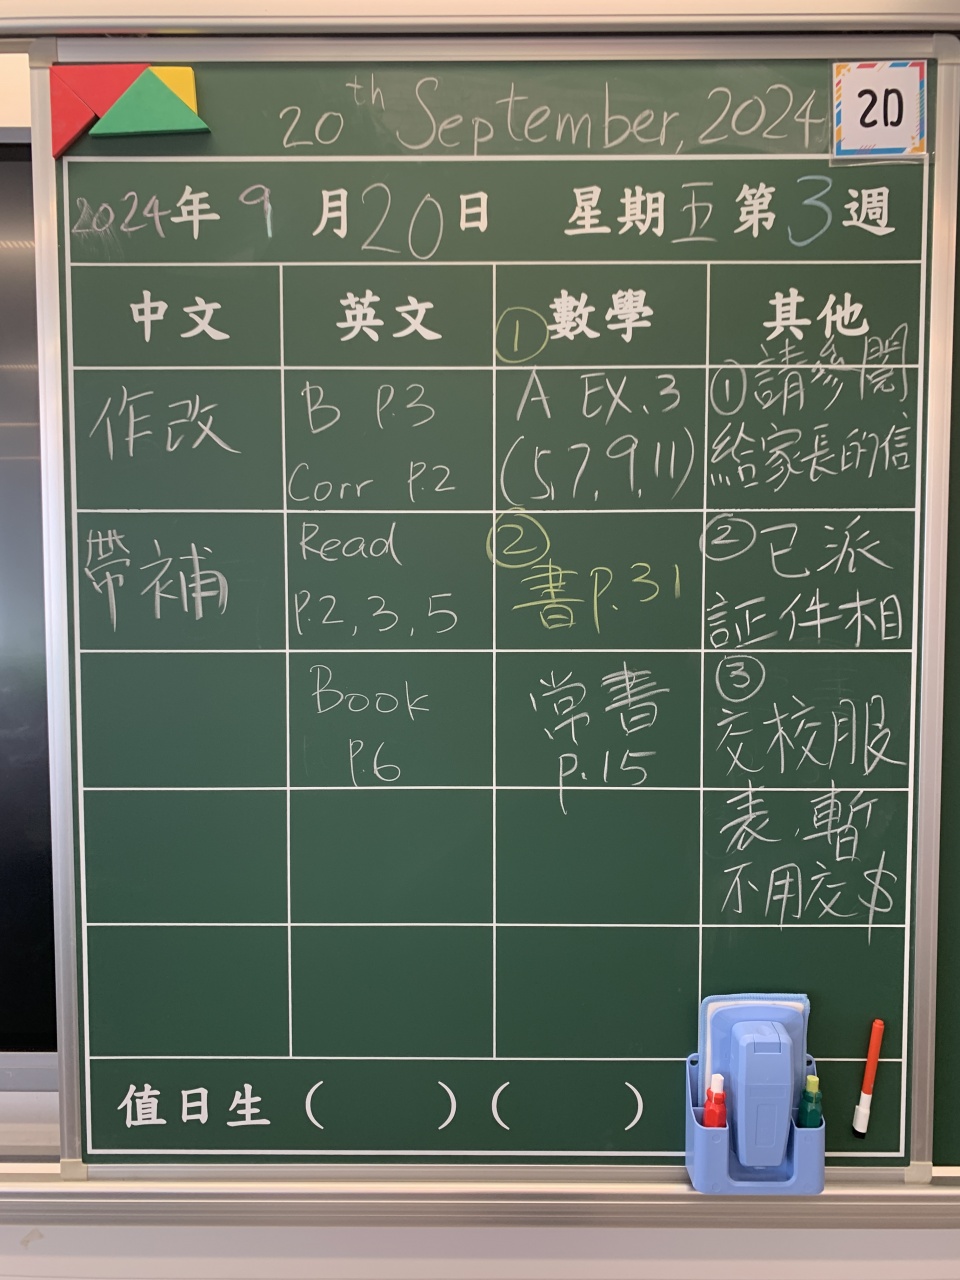 20th September, 2024
2D
2024年 9 月 20 日 星期五 第 3 週
中文
英文
數學
其他
作改
B P.3
Corr P.2
① A EX.3
(5,7,9,11)
①請參閱
給家長的信
帶補
Read
P.2,3,5
②
書p.31
②已派
証件相
Book
P.6
常書
p.15
③
交校服
表,暫
不用交$
值日生 ( ) ( )